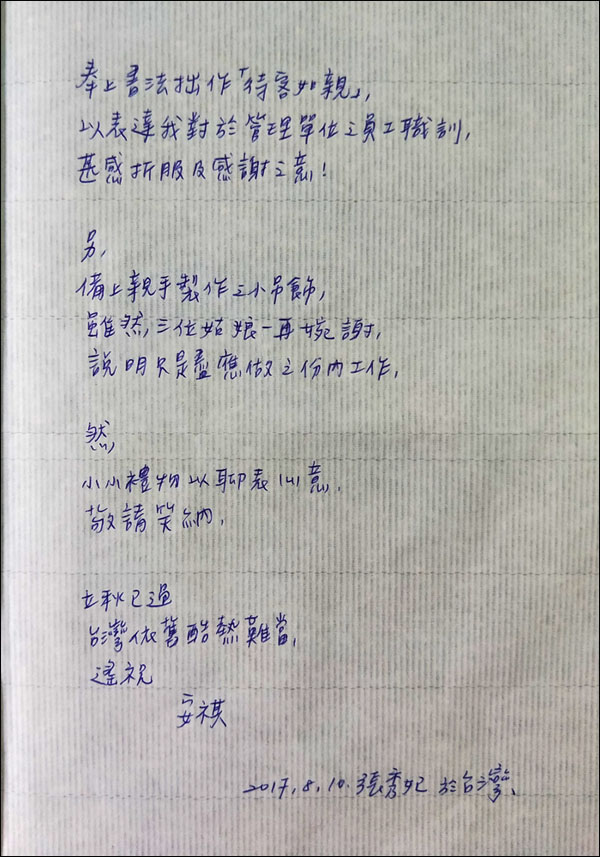 奉上書法拙作「待客如親」,
以表達我對於管理單位之員工職訓,
甚感折服及感謝之意!
另,
備上親手製作之小吊飾,
雖然,三位姑娘一再婉謝,
說明只是盡應做之份內工作,
然,
小小禮物以聊表心意,
敬請笑納,
立秋已過
台灣依舊酷熱難當,
遙祝
安祺
2017.8.10.張秀妃 於台灣、